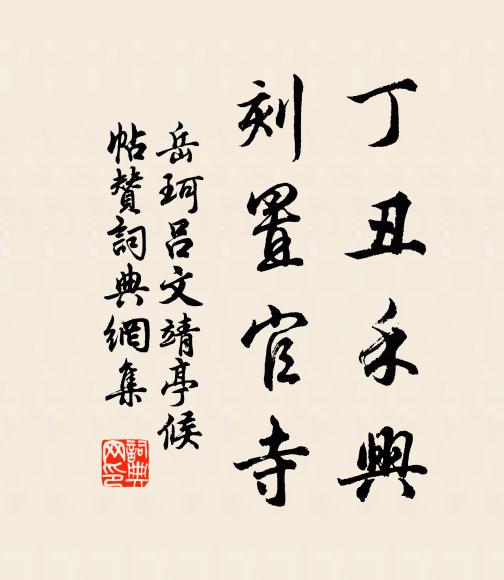 丁丑禾興
刻置官寺
岳珂呂文靖亭候
帖贊詞典網集
詞典網印